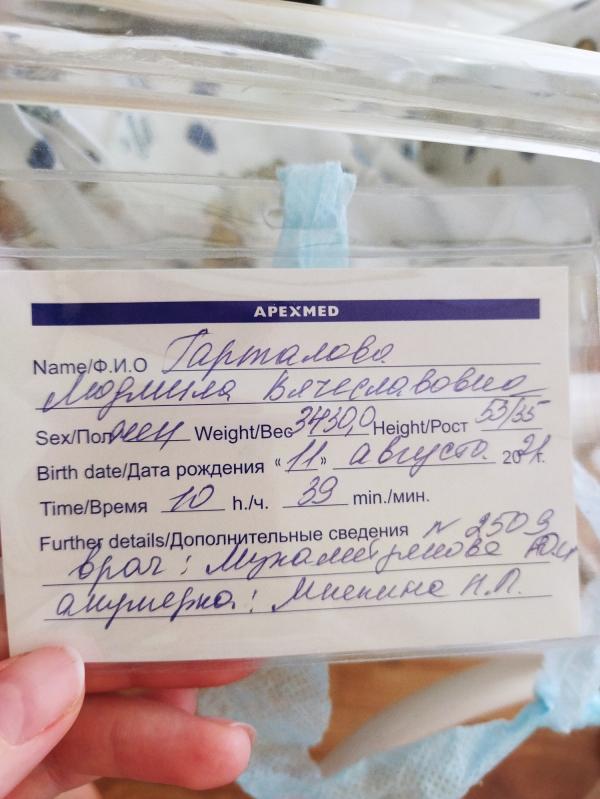 APEXMED
Name/Ф.И.О Гарталова
Людмила Вячеславовна
Sex/Пол жен Weight/Вес 3430,0 Height/Рост 53/35
Birth date/Дата рождения «11» августа 2021г.
Time/Время 10 h./ч. 39 min./мин.
Further details/Дополнительные сведения N 2509
врач: Мухаметдинова
акушерка: Н.П.